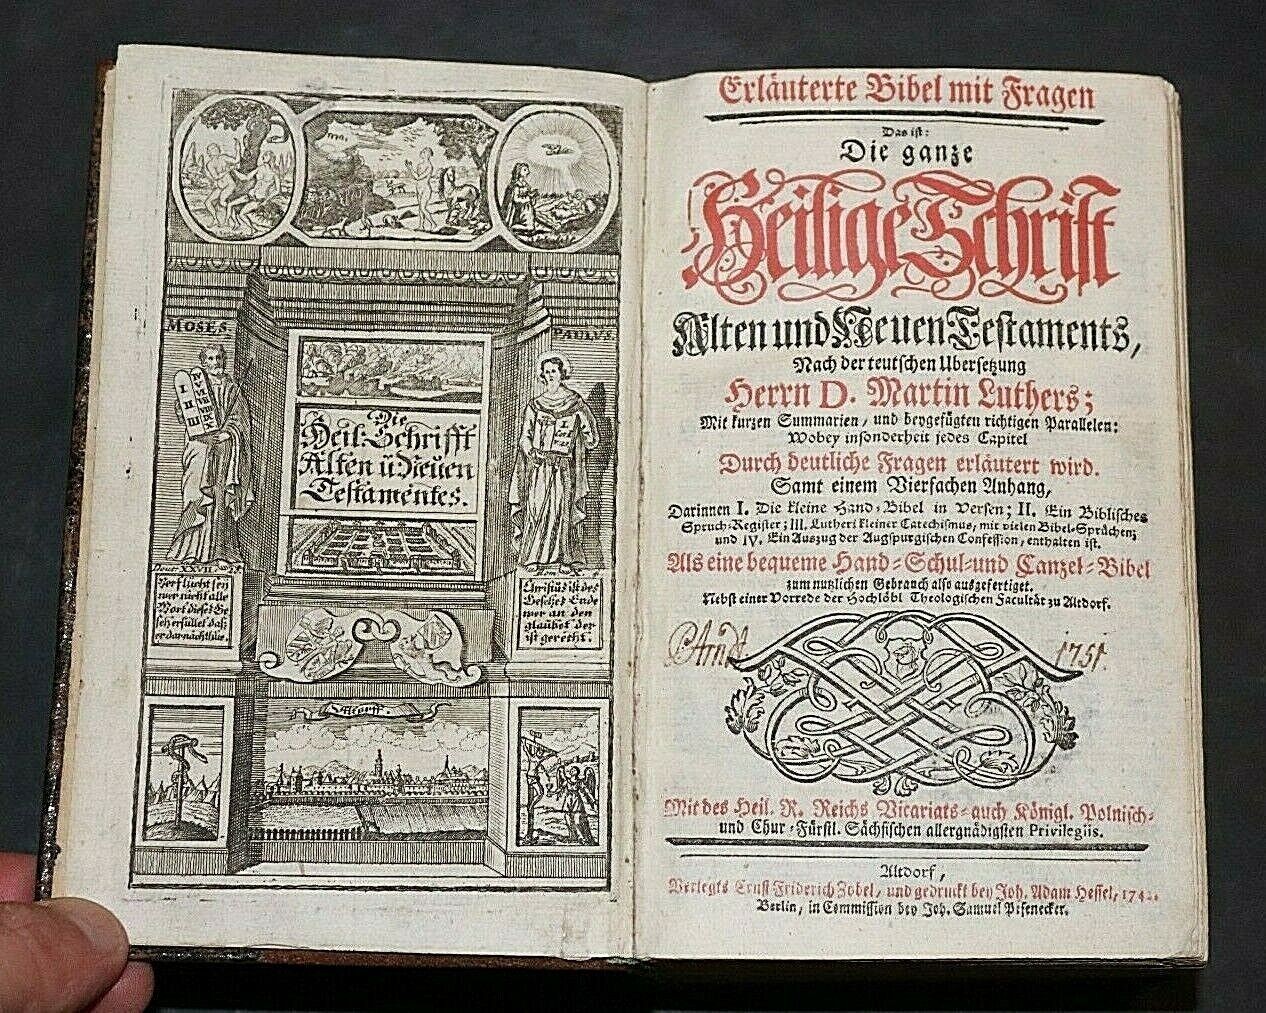 MOSES.
PAULUS.
I
II
III
Die
Heil: Schrifft
Alten ū. Neuen
Testamentes.
Deut XXVII
Verflucht sey
wer nicht alle
Wort dieses Ge
setz erfüllet daß
er darnach thue.
Christus ist des
Gesetzes Ende
wer an den
glaubet der
ist gerecht.
Altdorff.
Erläuterte Bibel mit Fragen
Das ist:
Die ganze
Heilige Schrift
Alten und Neuen Testaments,
Nach der teutschen Ubersetzung
Herrn D. Martin Luthers;
Mit kurzen Summarien, und beygefügten richtigen Parallelen:
Wobey insonderheit jedes Capitel
Durch deutliche Fragen erläutert wird.
Samt einem Vierfachen Anhang,
Darinnen I. Die kleine Hand-Bibel in Versen; II. Ein Biblisches
Spruch-Register; III. Lutheri kleiner Catechismus, mit vielen Bibel-Sprüchen;
und IV. Ein Auszug der Augspurgischen Confession, enthalten ist.
Als eine bequeme Hand-Schul-und Canzel-Bibel
zum nutzlichen Gebrauch also ausgefertiget.
Nebst einer Vorrede der Hochlöbl Theologischen Facultät zu Altdorf.
Arndt 1751.
Mit des Heil. R. Reichs Vicariats-auch Königl. Polnisch-
und Chur-Fürstl. Sächsischen allergnädigsten Privilegiis.
Altdorf,
Verlegts Ernst Friderich Zobel, und gedruckt bey Joh. Adam Hessel,
Berlin, in Commission bey Joh. Samuel